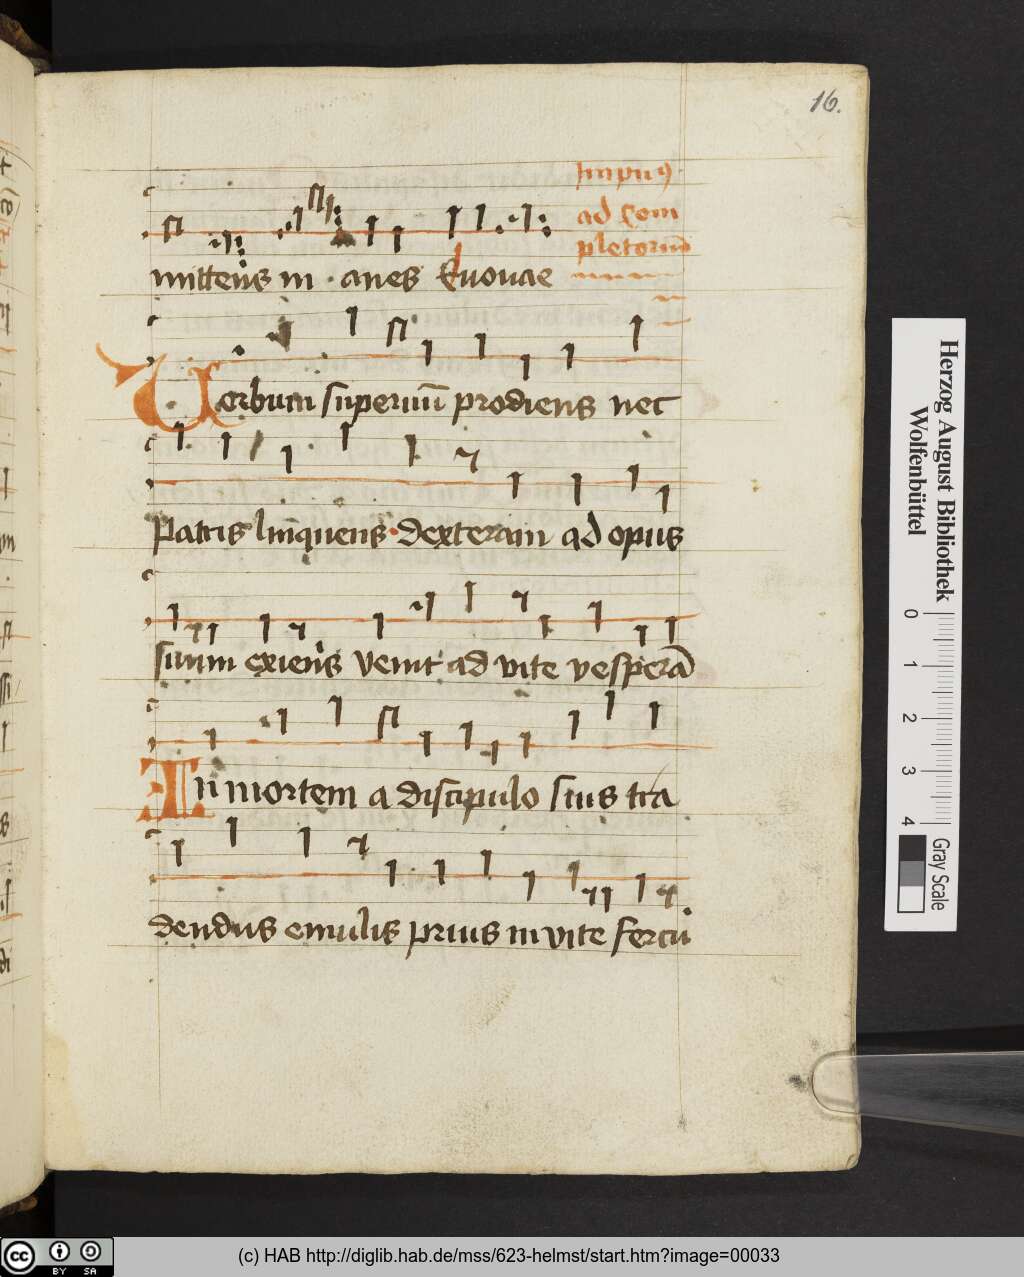 16.
Impnꝫ
ad Com
pletoriū
mittens in · anes Euouae
Uerbum supernū prodiens nec
Patris linquens · dexteram ad opus
suum exiens venit ad vite vesperā
In mortem a discipulo suus tra
dendus emulis prius in vite fercu
Herzog August Bibliothek
Wolfenbüttel
0 1 2 3 4
Gray Scale
cc BY SA
(c) HAB http://diglib.hab.de/mss/623-helmst/start.htm?image=00033